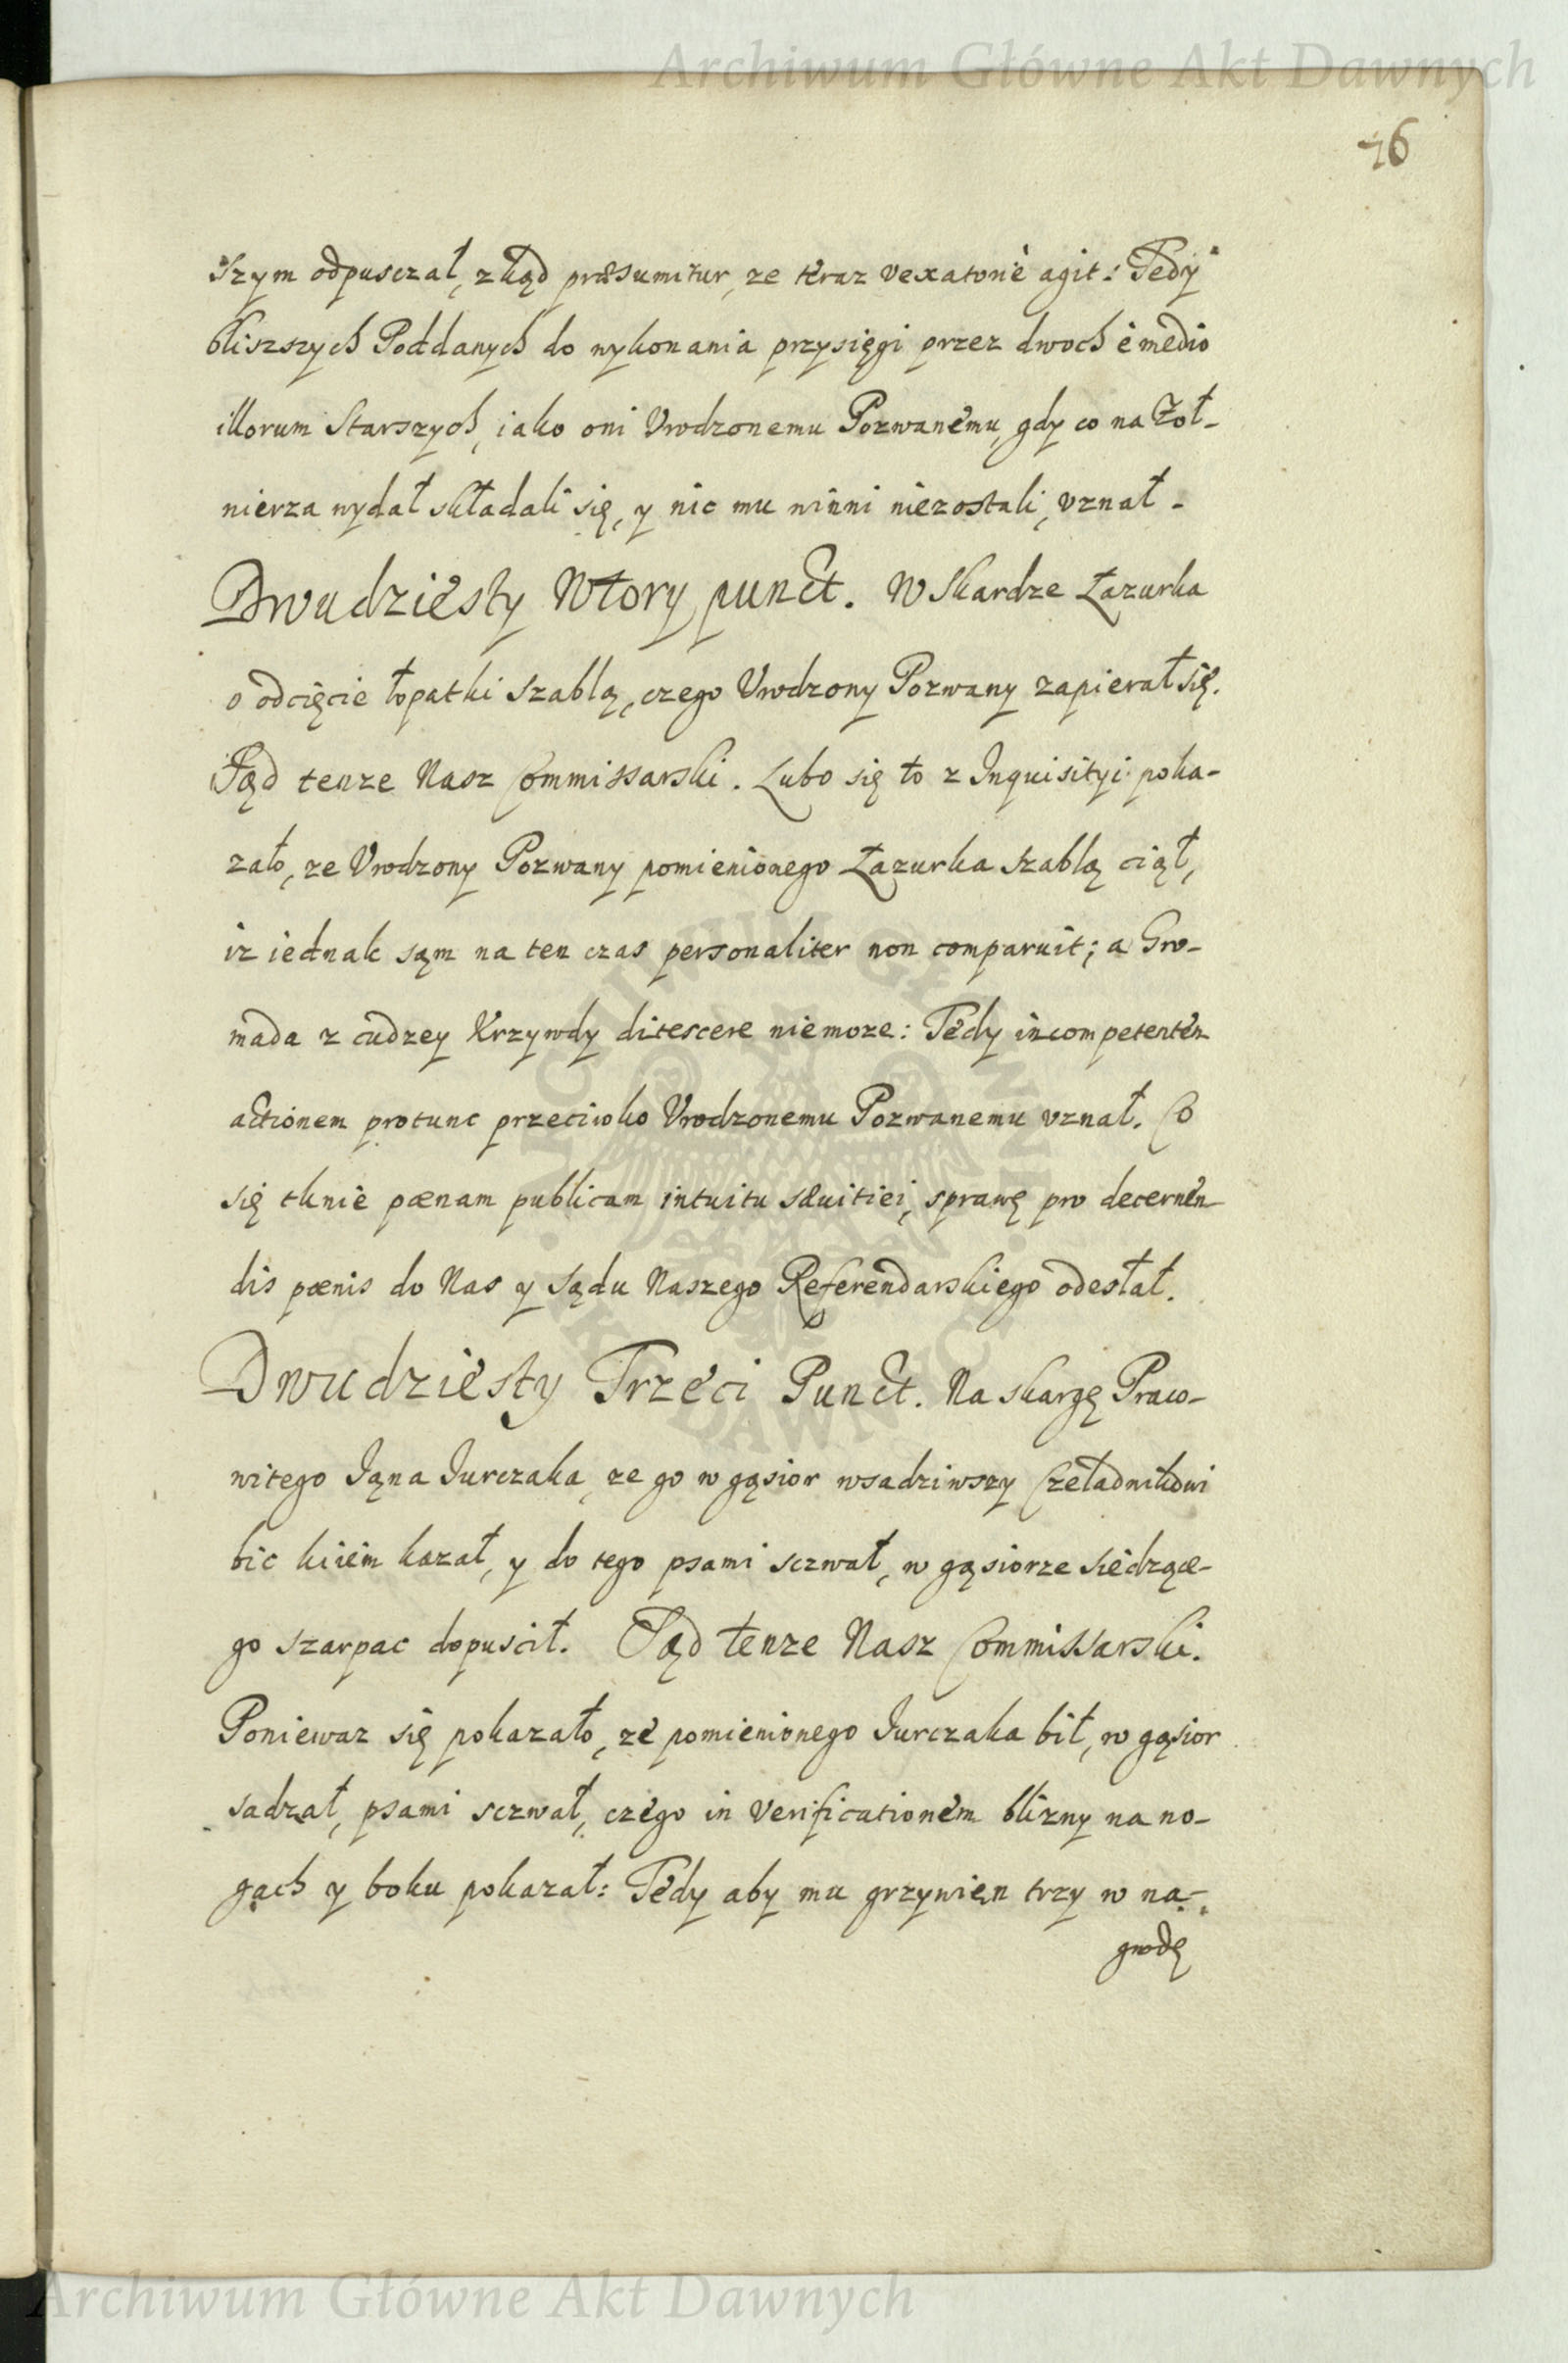 Archiwum Główne Akt Dawnych
76
szym odpusczał, zkąd præsumitur, ze teraz vexatoriè agit: Tedy
bliszszych Poddanych do wykonania przysięgi przez dwoch è medio
illorum Starszych, iako oni Vrodzonemu Pozwanemu, gdy co na Zoł-
nierza wydał składali się, y nic mu winni niezostali, vznał.
Dwudziesty Wtory punct. W Skardze Łazurka
o odcięcie łopatki szablą, czego Vrodzony Pozwany zapierał się.
Sąd tenze Nasz Commissarski. Lubo się to z Inquisityi poka-
zało, ze Vrodzony Pozwany pomienionego Łazurka szablą ciął,
iz iednak sąm na ten czas personaliter non comparuit; a Gro-
mada z cudzey Krzywdy ditescere niemoze: Tedy incompetentem
actionem protunc przeciwko Vrodzonemu Pozwanemu vznał. Co
się tknie pœnam publicam intuitu sæuitiei, sprawę pro decernen-
dis pœnis do Nas y sądu Naszego Referendarskiego odesłał.
Dwudziesty Trzeci Punct. Na skargę Praco-
witego Iąna Iurczaka, ze go w gąsior wsadziwszy Czeladnikowi
bic kiiem kazał, y do tego psami sczwał, w gąsiorze siedzące-
go szarpac dopuscił. Sąd tenze Nasz Commissarski.
Poniewaz się pokazało, ze pomienionego Iurczaka bił, w gąsior
sadzał, psami sczwał, czego in verificationem blizny na no-
gach y boku pokazał: Tedy aby mu grzywien trzy w na-
grodę
Archiwum Główne Akt Dawnych